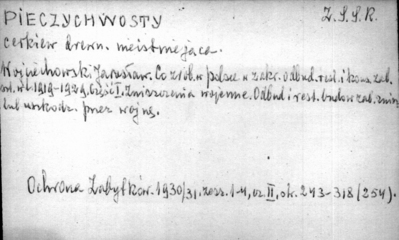 PIECZYCHWOSTY Z.S.S.R.
cerkiew drewn. nieistniejąca.
Wojciechowski Jarosław. Co zrob. w Polsce w zakr. odbud. rest. i kons. zab.
w l. 1919-1929. Część I. Zniszczenia wojenne. Odbud. i rest. budow. zab. znisz.
lub uszkodz. przez wojnę.
Ochrona Zabytków. 1930/31, zesz. 1-4, cz. II, str. 243-318 (254).